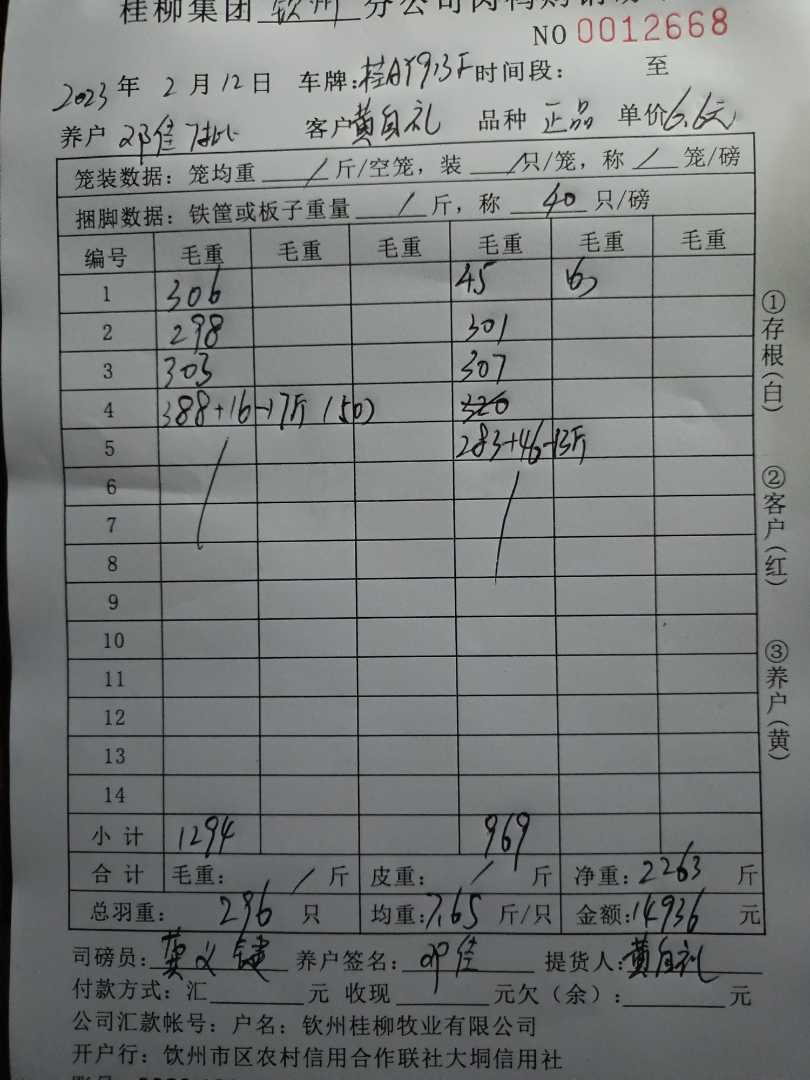 桂柳集团 钦州 分公司肉鸭购销
NO 0012668
2023 年 2 月 12 日 车牌: 时间段: 至
养户 邓佳 客户 黄自礼 品种 正品 单价 6.6元
笼装数据: 笼均重 / 斤/空笼, 装 / 只/笼, 称 / 笼/磅
捆脚数据: 铁筐或板子重量 / 斤, 称 40 只/磅
编号 毛重 毛重 毛重 毛重 毛重 毛重
1 306 45 6只
2 298 301
3 303 307
4 388+16-17斤 (50) 320
5 283+46-13斤
6
7
8
9
10
11
12
13
14
小计 1294 969
合计 毛重: / 斤 皮重: / 斤 净重: 2263 斤
总羽重: 296 只 均重: 7.65 斤/只 金额: 14936 元
司磅员: 龚义键 养户签名: 邓佳 提货人: 黄自礼
付款方式: 汇 元 收现 元欠(余): 元
公司汇款帐号: 户名: 钦州桂柳牧业有限公司
开户行: 钦州市区农村信用合作联社大垌信用社
①存根(白)
②客户(红)
③养户(黄)